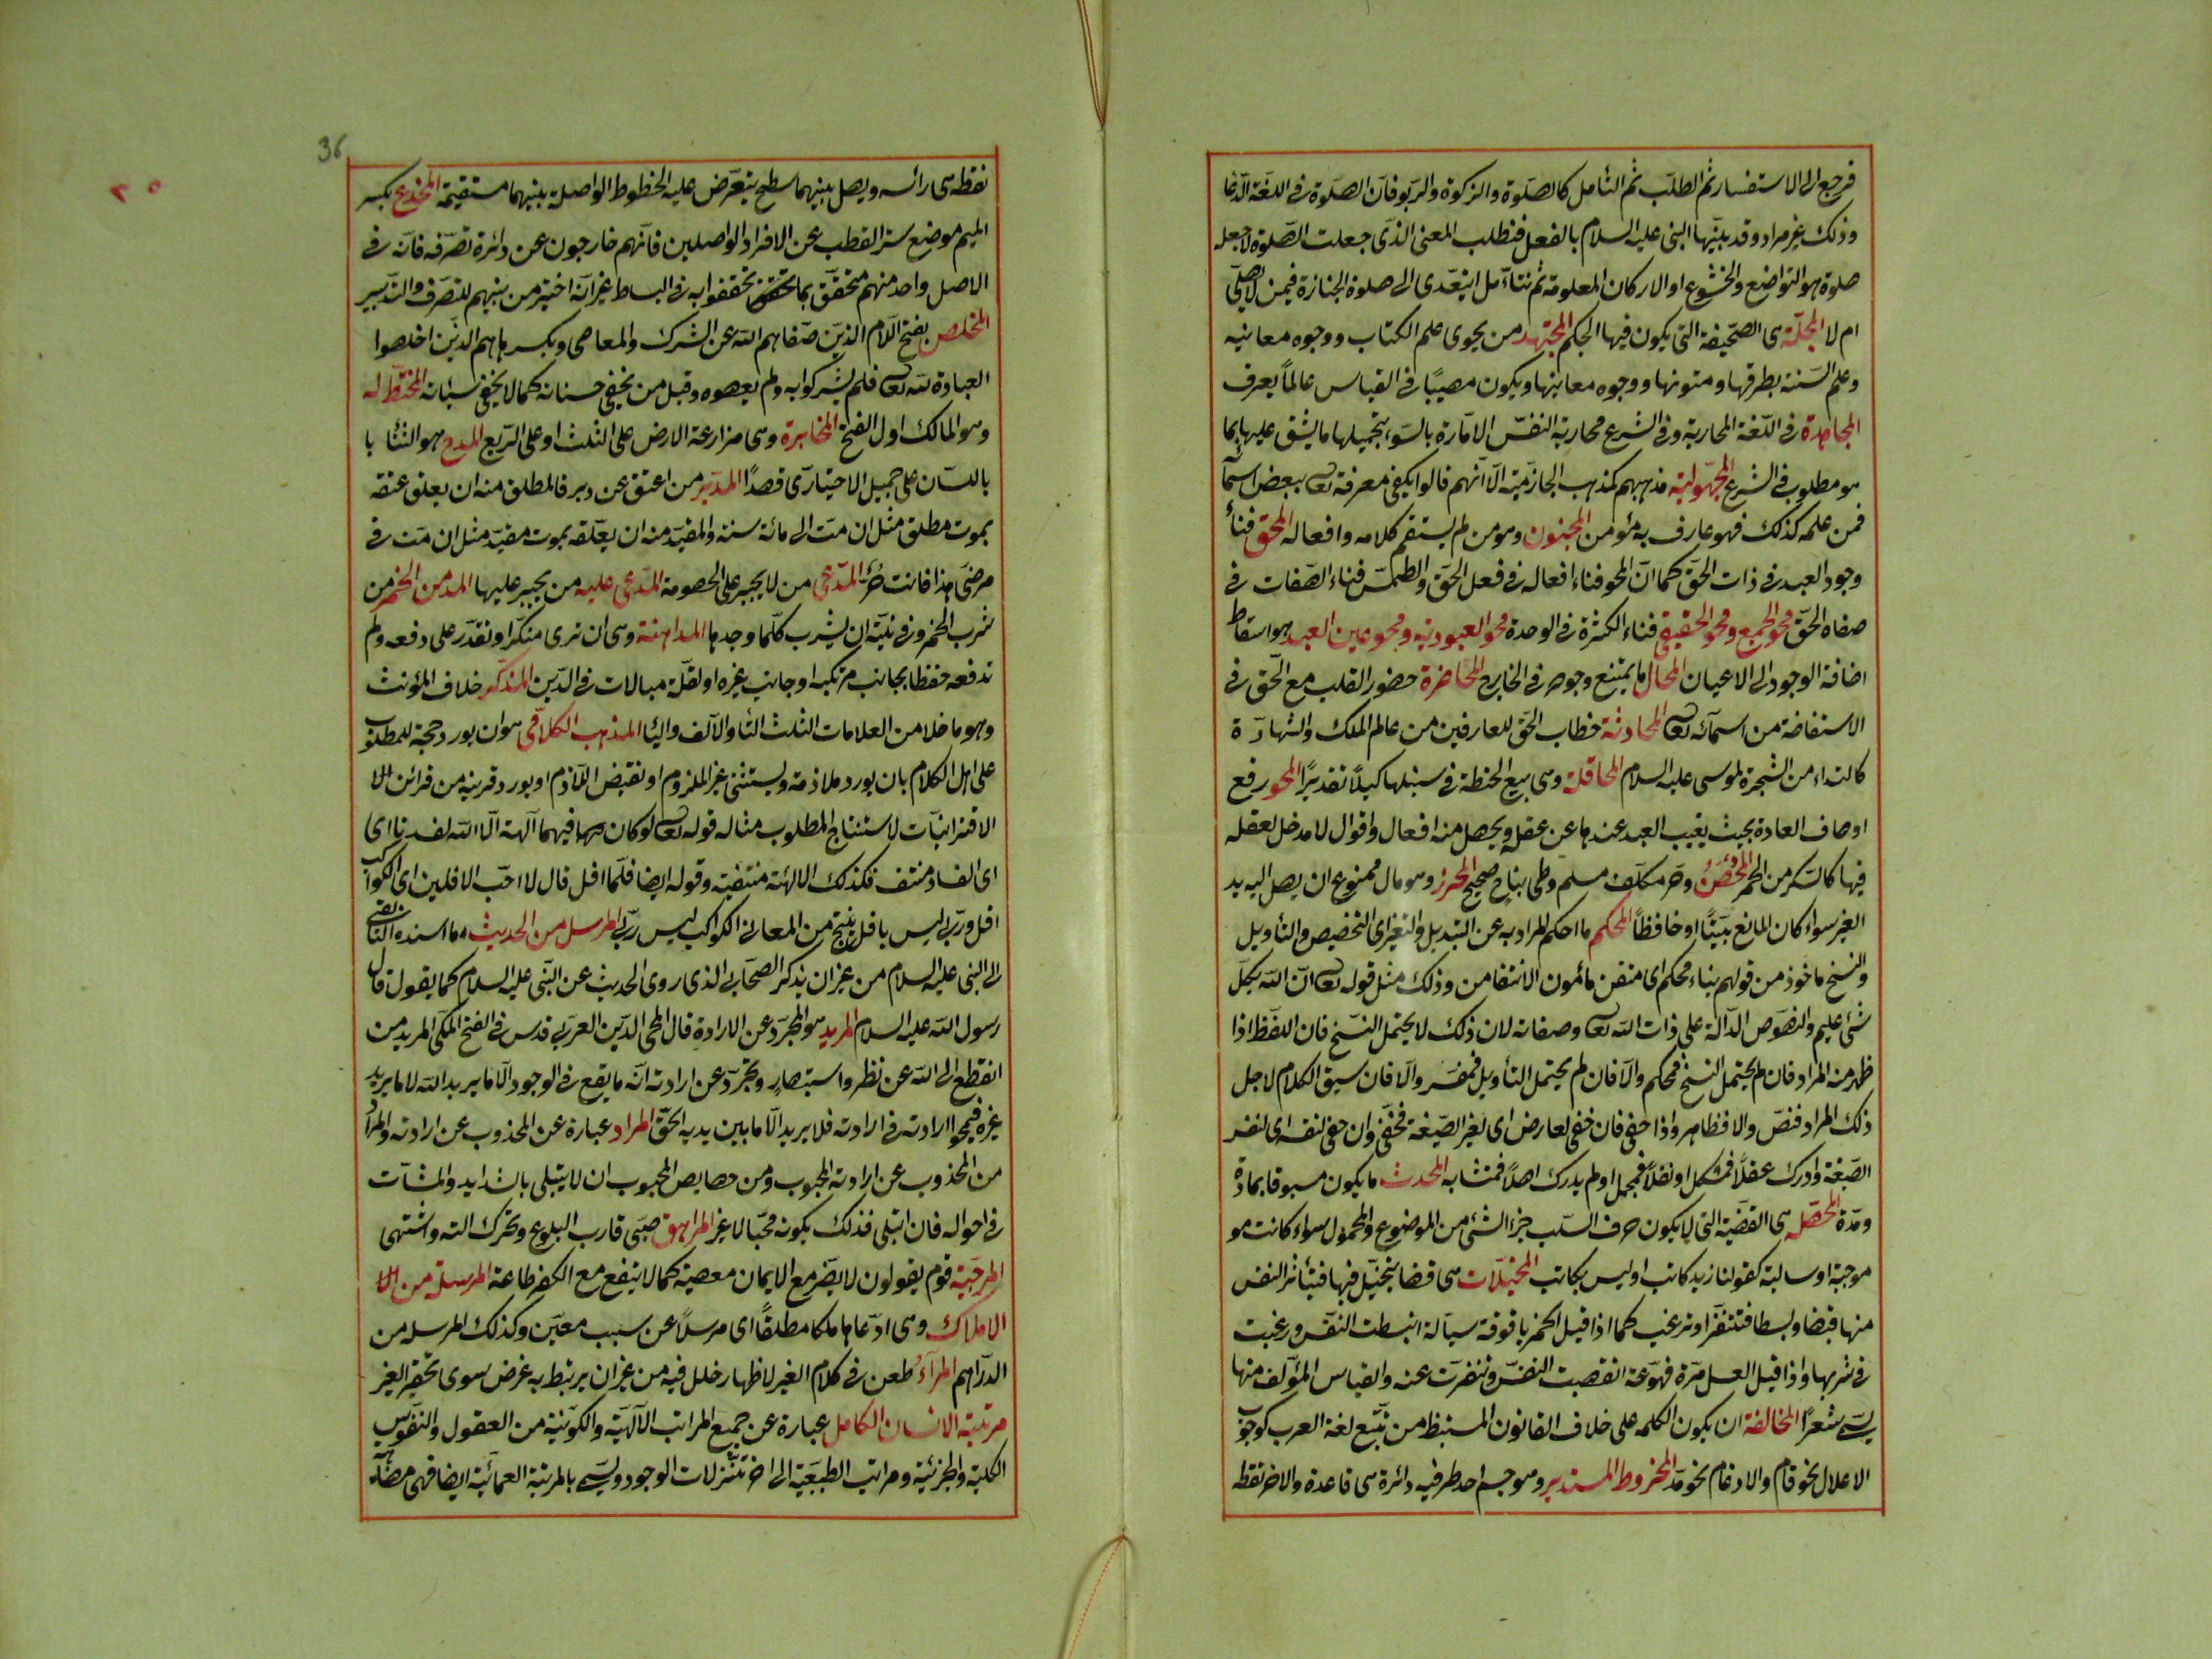 فرجع الى الاستفسار ثم الطلب ثم التأمل كالصلوة والزكوة والربو فان الصلوة فى اللغة الدعا
وذلك غير مراد وقد بينها النبى عليه السلام بالفعل فنطلب المعنى الذى جعلت الصلوة لاجله
صلوة هو التواضع والخشوع او الاركان المعلومة ثم نتأمل ايتعدى الى صلوة الجنازة فيمن لا يصلى
ام لا المجلة هى الصحيفة التى يكون فيها الحكم المجتهد من يحوى علم الكتاب ووجوه معانيه
وعلم السنة بطرقها ومتونها ووجوه معانيها ويكون مصيبًا فى القياس عالمًا يعرف
المجاهدة فى اللغة المحاربة وفى الشرع محاربة النفس الامارة بالسوء بتحميلها ما يشق عليها بما
هو مطلوب فى الشرع المجهولية مذهبهم كمذهب الجازمية الا انهم قالوا يكفى معرفة تعا ببعض اسمآ
فمن علمه كذلك فهو عارف به مؤمن المجنون وهو من لم يستقم كلامه وافعاله المحق فنأ
وجود العبد فى ذات الحق كما ان المحو فناء افعاله فى فعل الحق والطمس فناء الصفات فى
صفاة الحق محو الجمع ومحو الحقيقى فناء الكثرة فى الوحدة محو العبودية ومحو عين العبد هو اسقاط
اضافة الوجود الى الاعيان المحال ما يمتنع وجوده فى الخارج المحاضرة حضور القلب مع الحق فى
الاستفاضة من اسمآئه تعا المحادثة خطاب الحق للعارفين من عالم الملك والشهادة
كالنداء من الشجرة لموسى عليه السلام المحاقلة وهى بيع الحنطة فى سنبلها كيلًا تقديرًا المحو رفع
اوصاف العادة بحيث يغيب العبد عندها عن عقله ويحصل منه افعال واقوال لا مدخل لعقله
فيها كالسكر من الخمر المحصن وحر مكلف مسلم وطى بنكاح صحيح المحرز وهو مال ممنوع ان يصل اليه يد
الغير سواء كان المانع بيتًا او حافظًا المحكم ما احكم المراد به عن التبديل والتغير اى التخصيص والتأويل
والنسخ ماخوذ من قولهم بناء محكم اى متقن مأمون الانتقامن وذلك مثل قوله تعا ان الله بكل
شئ عليم والنصوص الدالة على ذات الله تعا وصفاته لان ذلك لا يحتمل النسخ فان اللفظ اذا
ظهر منه المراد فان لم يحتمل النسخ فمحكم والا فان لم يحتمل التأويل فمفسر والا فان سيق الكلام لاجل
ذلك المراد فنص والا فظاهر واذا خفى فان خفى لعارض اى لغير الصيغة فخفى وان خفى لنفسه اى لنفس
الصيغة وادرك عقلًا فمشكل او نقلًا فمجمل او لم يدرك اصلًا فمتشابه المحدث ما يكون مسبوقا بمادة
ومدة المحصلة هى القضية التى لا يكون حرف السلب جزء الشئ من الموضوع والمحمول سواء كانت مو
موجبة او سالبة كقولنا زيد كاتب او ليس بكاتب المخيلات هى قضايا يتخيل فيها فيتأثر النفس
منها قبضا وبسطا فتنفر او ترغب كما اذا قيل الخمر ياقوتة سيالة انبسطت النفس ورغبت
فى شربها واذا قيل العسل مرة مهوعة انقبضت النفس وتنفرت عنه والقياس المؤلف منها
يسمى شعرًا المخالفة ان يكون الكلمة على خلاف القانون المستنبط من تتبع لغة العرب كوجوب
الاعلال نحو قام والادغام نحو مد المخروط المستدير وهو جسم احد طرفيه دائرة هى قاعدة والاخر نقطه
36
نقطه هى رائسه ويصل بينهما سطح يتعرض عليه الخطوط الواصلة بينهما مستقيمة المخدع بكسر
الميم موضع ستر القطب عن الافراد الواصلين فانهم خارجون عن دائرة تصرفه فانه فى
الاصل واحد منهم متحقق بما تحققوا به فى البساط غير انه اختير من بينهم للتصرف والتدبير
المخلص بفتح اللام الذين صفاهم الله عن الشرك والمعاصى وبكسرها هم الذين اخلصوا
العبادة لله تعا فلم يشركوا به ولم يعصوه وقيل من يخفى حسناته كما لا يخفى سيأته المختط له
وهو المالك اول الفتح المخابرة وهى مزارعة الارض على الثلث او على الربع المدح هو الثنأ با
باللسان على جميل الاختيارى قصدًا المدبر من اعتق عن دبر فالمطلق منه ان يعلق عتقه
بموت مطلق مثل ان مت الى مائة سنة والمقيد منه ان يعلقه بموت مقيد مثل ان مت فى
مرضى هذا فانت حر المدعى من لا يجبر على الخصومة المدعى عليه من يجبر عليها المدمن الخمر من
شرب الخمر وفى نيته ان يشرب كلما وجدها المداهنة وهى ان ترى منكرا وتقدر على دفعه ولم
تدفعه حفظا لجانب مرتكبه او جانب غيره او لقلة مبالات فى الدين المذكر خلاف المؤنث
وهو ما خلا من العلامات الثلث التأ والالف واليأ المذهب الكلامى هو ان يورد حجة للمطلوب
على اهل الكلام بان يورد ملازمة ويستثنى عين الملزوم او نقيض اللازم او يورد قرينة من قرائن الا
الاقترانيات لاستنتاج المطلوب مثاله قوله تعا لو كان فيهما آلهة الا الله لفسدتا اى
اى الفساد منتف فكذلك الالهة منتفية وقوله ايضا فلما افل قال لا احب الافلين اى الكواكب
افل وربى ليس بافل ينتج من المعانى الكواكب ليس ربى المرسل من الحديث ما اسنده التابعى
الى النبى عليه السلام من غير ان يذكر الصحابى الذى روى الحديث عن النبى عليه السلام كما يقول قال
رسول الله عليه السلام المريد هو المجرد عن الارادة قال المحى الدين العربى قدس فى الفتح المكى المريد من
انقطع الى الله عن نظر واستبصار وتجرد عن ارادته انه ما يقع فى الوجود الا ما يريد الله لا ما يريد
غيره فيمحوا ارادته فى ارادته فلا يريد الا ما بين يديه الحق المراد عبارة عن المجذوب عن ارادته والمراد
من المجذوب عن ارادته المحبوب ومن خصايص المحبوب ان لا يبتلى بالشدايد والمشآت
فى احواله فان ابتلى فذلك بكونه محبًا لا غير المراهق صبى قارب البلوغ وتحرك الته واشتهى
المرجية قوم يقولون لا يضر مع الايمان معصية كما لا ينفع مع الكفر طاعة المرسلة من الا
الاملاك وهى ادعاها ملكا مطلقًا اى مرسلًا عن سبب معين وكذلك المرسلة من
الدراهم المرآء طعن فى كلام الغير لاظهار خلل فيه من غير ان يرتبط به غرض سوى تحقير الغير
مرتبة الانسان الكامل عبارة عن جميع المراتب الالهية والكونية من العقول والنفوس
الكلية والجزئية ومراتب الطبيعية الى اخر تنزلات الوجود ويسمى بالمرتبة العمائية ايضا فهى مضاهة